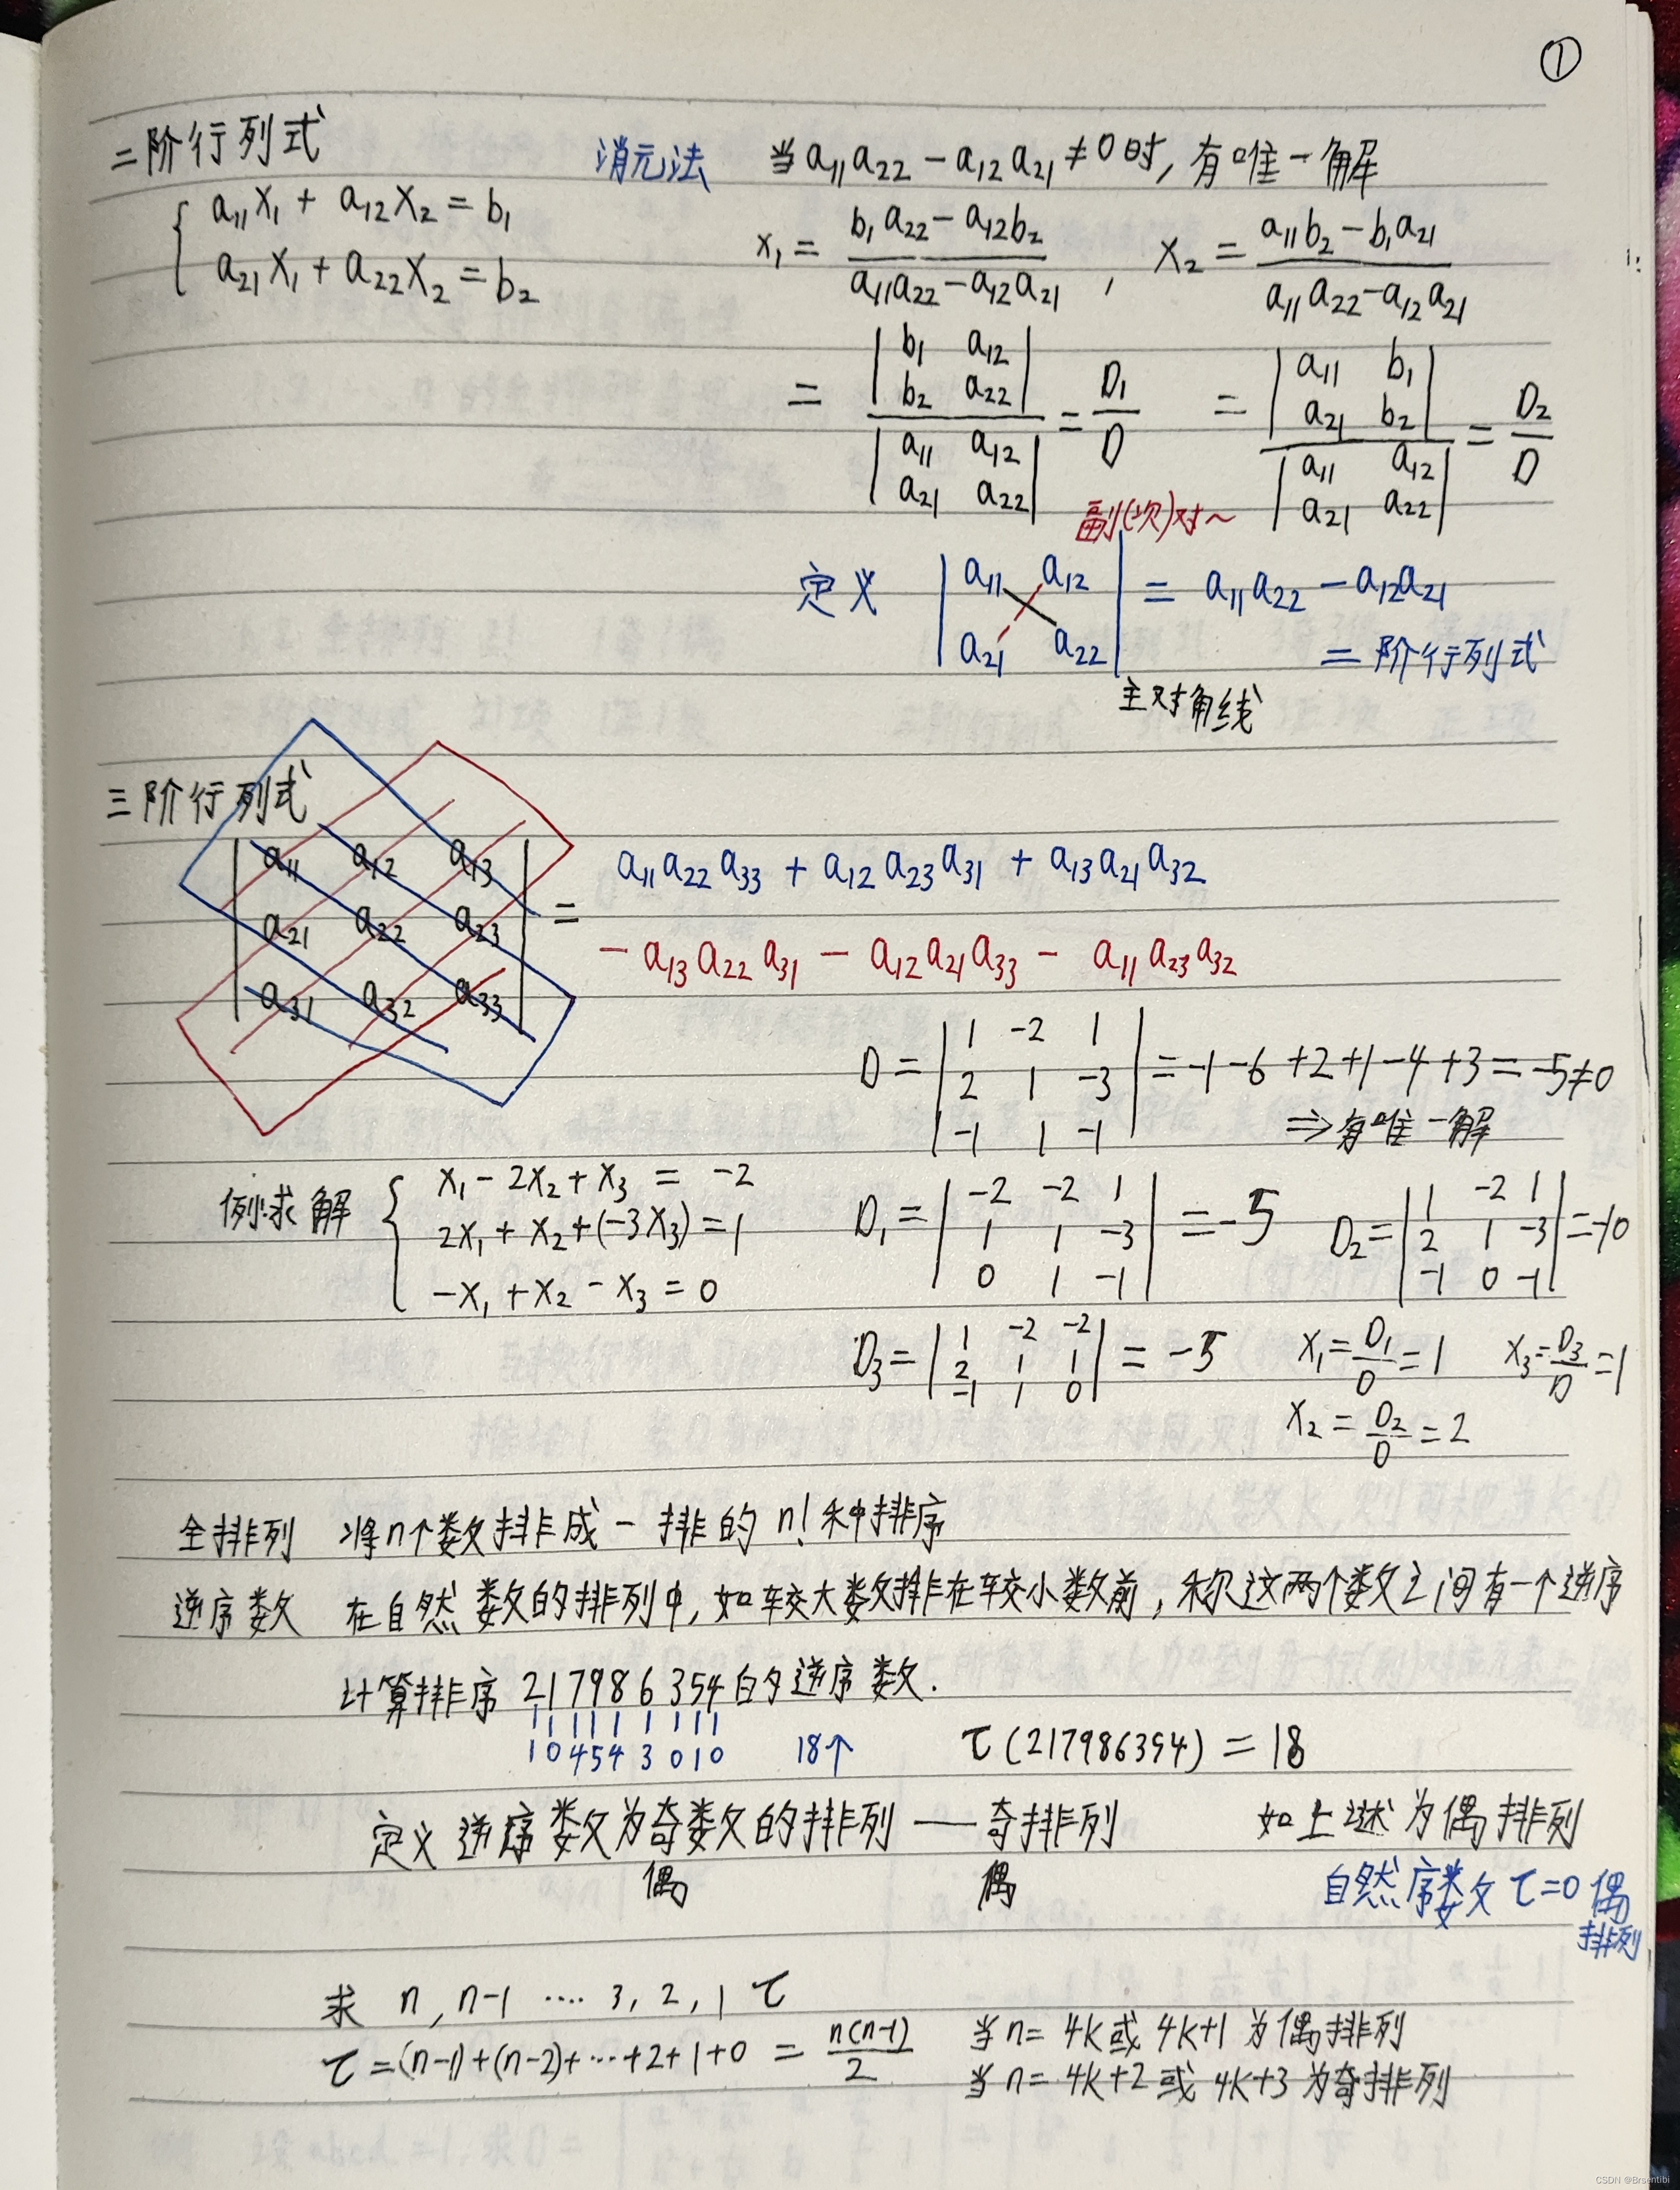 ①
二阶行列式 消元法 当a₁₁a₂₂-a₁₂a₂₁≠0时,有唯一解
{ a₁₁x₁+a₁₂x₂=b₁
a₂₁x₁+a₂₂x₂=b₂
x₁=(b₁a₂₂-a₁₂b₂)/(a₁₁a₂₂-a₁₂a₂₁), x₂=(a₁₁b₂-b₁a₂₁)/(a₁₁a₂₂-a₁₂a₂₁)
= |b₁ a₁₂; b₂ a₂₂| / |a₁₁ a₁₂; a₂₁ a₂₂| = D₁/D = |a₁₁ b₁; a₂₁ b₂| / |a₁₁ a₁₂; a₂₁ a₂₂| = D₂/D
副(次)对~
定义 |a₁₁ a₁₂; a₂₁ a₂₂| = a₁₁a₂₂-a₁₂a₂₁
二阶行列式
主对角线
三阶行列式
|a₁₁ a₁₂ a₁₃; a₂₁ a₂₂ a₂₃; a₃₁ a₃₂ a₃₃| = a₁₁a₂₂a₃₃+a₁₂a₂₃a₃₁+a₁₃a₂₁a₃₂
-a₁₃a₂₂a₃₁-a₁₂a₂₁a₃₃-a₁₁a₂₃a₃₂
D=|1 -2 1; 2 1 -3; -1 1 -1|=-1-6+2+1-4+3=-5≠0
⇒有唯一解
例求解 { x₁-2x₂+x₃=-2
2x₁+x₂+(-3x₃)=1
-x₁+x₂-x₃=0
D₁=|-2 -2 1; 1 1 -3; 0 1 -1|=-5 D₂=|1 -2 1; 2 1 -3; -1 0 -1|=-10
D₃=|1 -2 -2; 2 1 1; -1 1 0|=-5 x₁=D₁/D=1 x₃=D₃/D=1
x₂=D₂/D=2
全排列 将n个数排成一排的n!种排序
逆序数 在自然数的排列中,如较大数排在较小数前,称这两个数之间有一个逆序
计算排序 217986354的逆序数.
1 0 4 5 4 3 0 1 0 18个 τ(217986354)=18
定义 逆序数为奇数的排列——奇排列 如上述为偶排列
偶 偶 自然序数τ=0偶
排列
求 n,n-1 ···· 3,2,1 τ
τ=(n-1)+(n-2)+···+2+1+0=n(n-1)/2 当n=4k或4k+1为偶排列
当n=4k+2或4k+3为奇排列
CSDN @Brsentibi